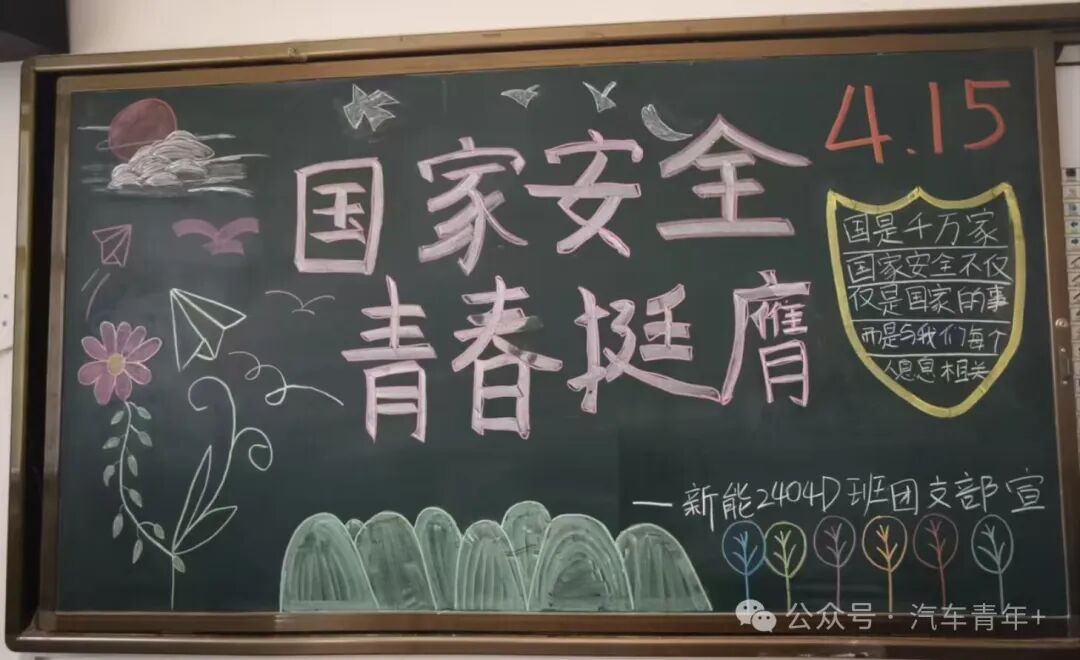 国家安全
青春挺膺
4.15
国是千万家
国家安全不仅
仅是国家的事
而是与我们每个
人息息相关
—新能2404D班团支部宣
公众号·汽车青年+